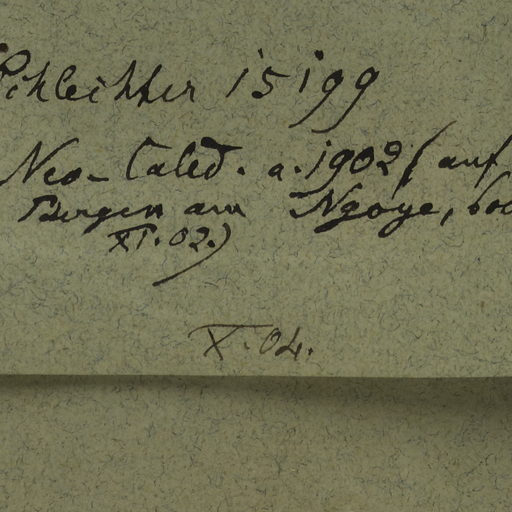 Schlechter 15199
Neo-Caled. a. 1902 (auf
Bergen am Ngoye,
XI.02.)
X.04.